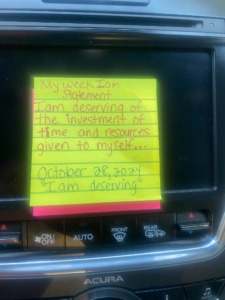 My week I am
Statement
I am deserving of
the investment of
time and resources
given to myself...
October 28, 2024
"I am deserving"
ON/
OFF
AUTO
FRONT
REAR
ACURA